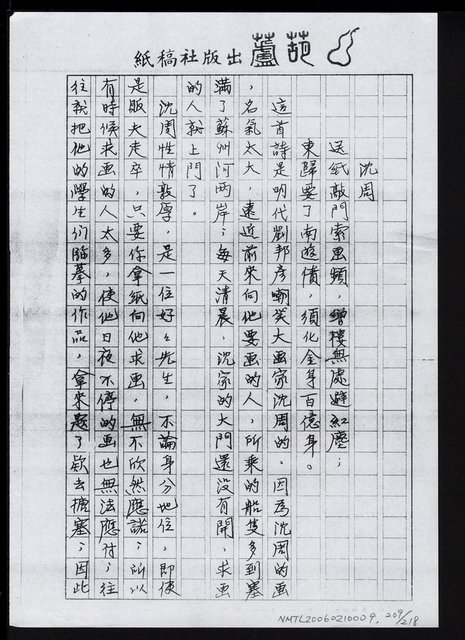 葫蘆出版社稿紙
沈周
送紙敲門索画頻，僧樓無處避紅塵；
東歸要了南遊債，須化金身百億身。
這首詩是明代劉邦彦嘲笑大画家沈周的，因為沈周的画
，名氣太大，遠近前來向他要画的人，所乘的船隻多到塞
滿了蘇州河两岸；每天清晨，沈家的大門還没有開，求画
的人就上門了。
沈周性情敦厚，是一位好好先生，不論身分地位，即使
是販夫走卒，只要你拿紙向他求画，無不欣然應諾；所以
有時候求画的人太多，使他日夜不停的画也無法應付；往
往就把他的學生们臨摹的作品，拿來題了款去搪塞；因此
NMTL20060210009. 209/218